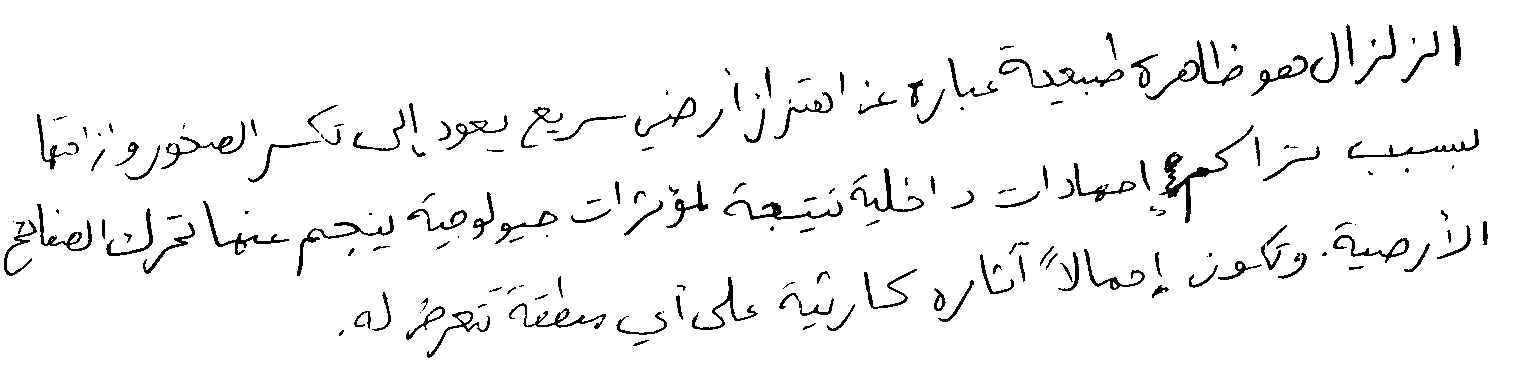 الزلزال هو ظاهرة طبيعية عبارة عن اهتزاز أرضي سريع يعود إلى تكسر الصخور وإزاحتها
بسبب تراكم إجهادات داخلية نتيجة لمؤثرات جيولوجية ينجم عنها تحرك الصفائح
الأرضية. وتكون إجمالاً آثاره كارثية على أي منطقة تتعرض له.